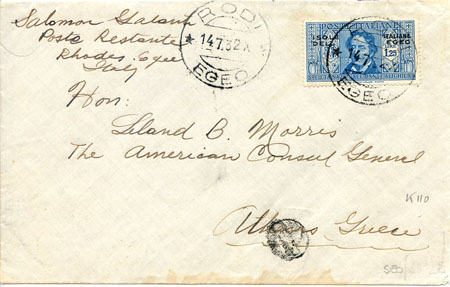 Salomon Galanti
Poste Restante
Rhodes. Egeo
Italy
RODI
14.7.32.X
EGEO
POSTE ITALIANE
ISOLE ITALIANE
DELL' EGEO
1,25
EGEO
Hon:
Leland B. Morris
The American Consul General
Athens Greece
K110